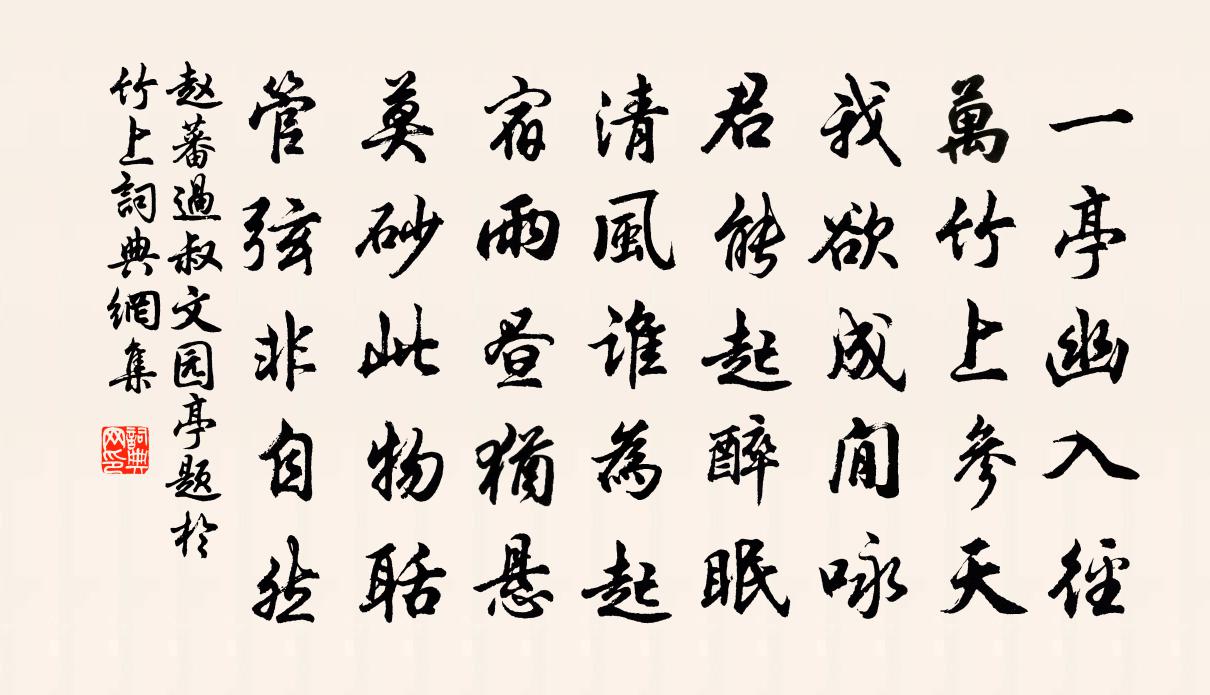 一亭幽入徑
萬竹上參天
我欲成閒咏
君能起醉眠
清風誰為起
宿雨晝猶懸
莫砂此物聒
管弦非自然
赵蕃過叔文园亭题於
竹上詞典網集
詞典网印